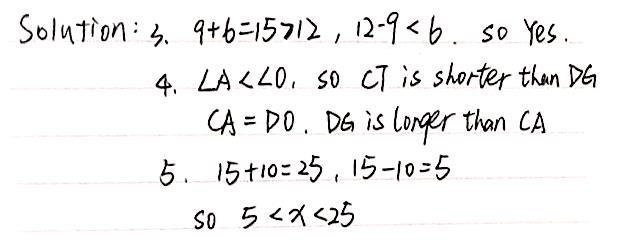 Solution: 3. 9+6=15>12, 12-9<6. so Yes.
4. ∠A<∠O, so CT is shorter than DG
CA=DO. DG is longer than CA
5. 15+10=25, 15-10=5
so 5<x<25